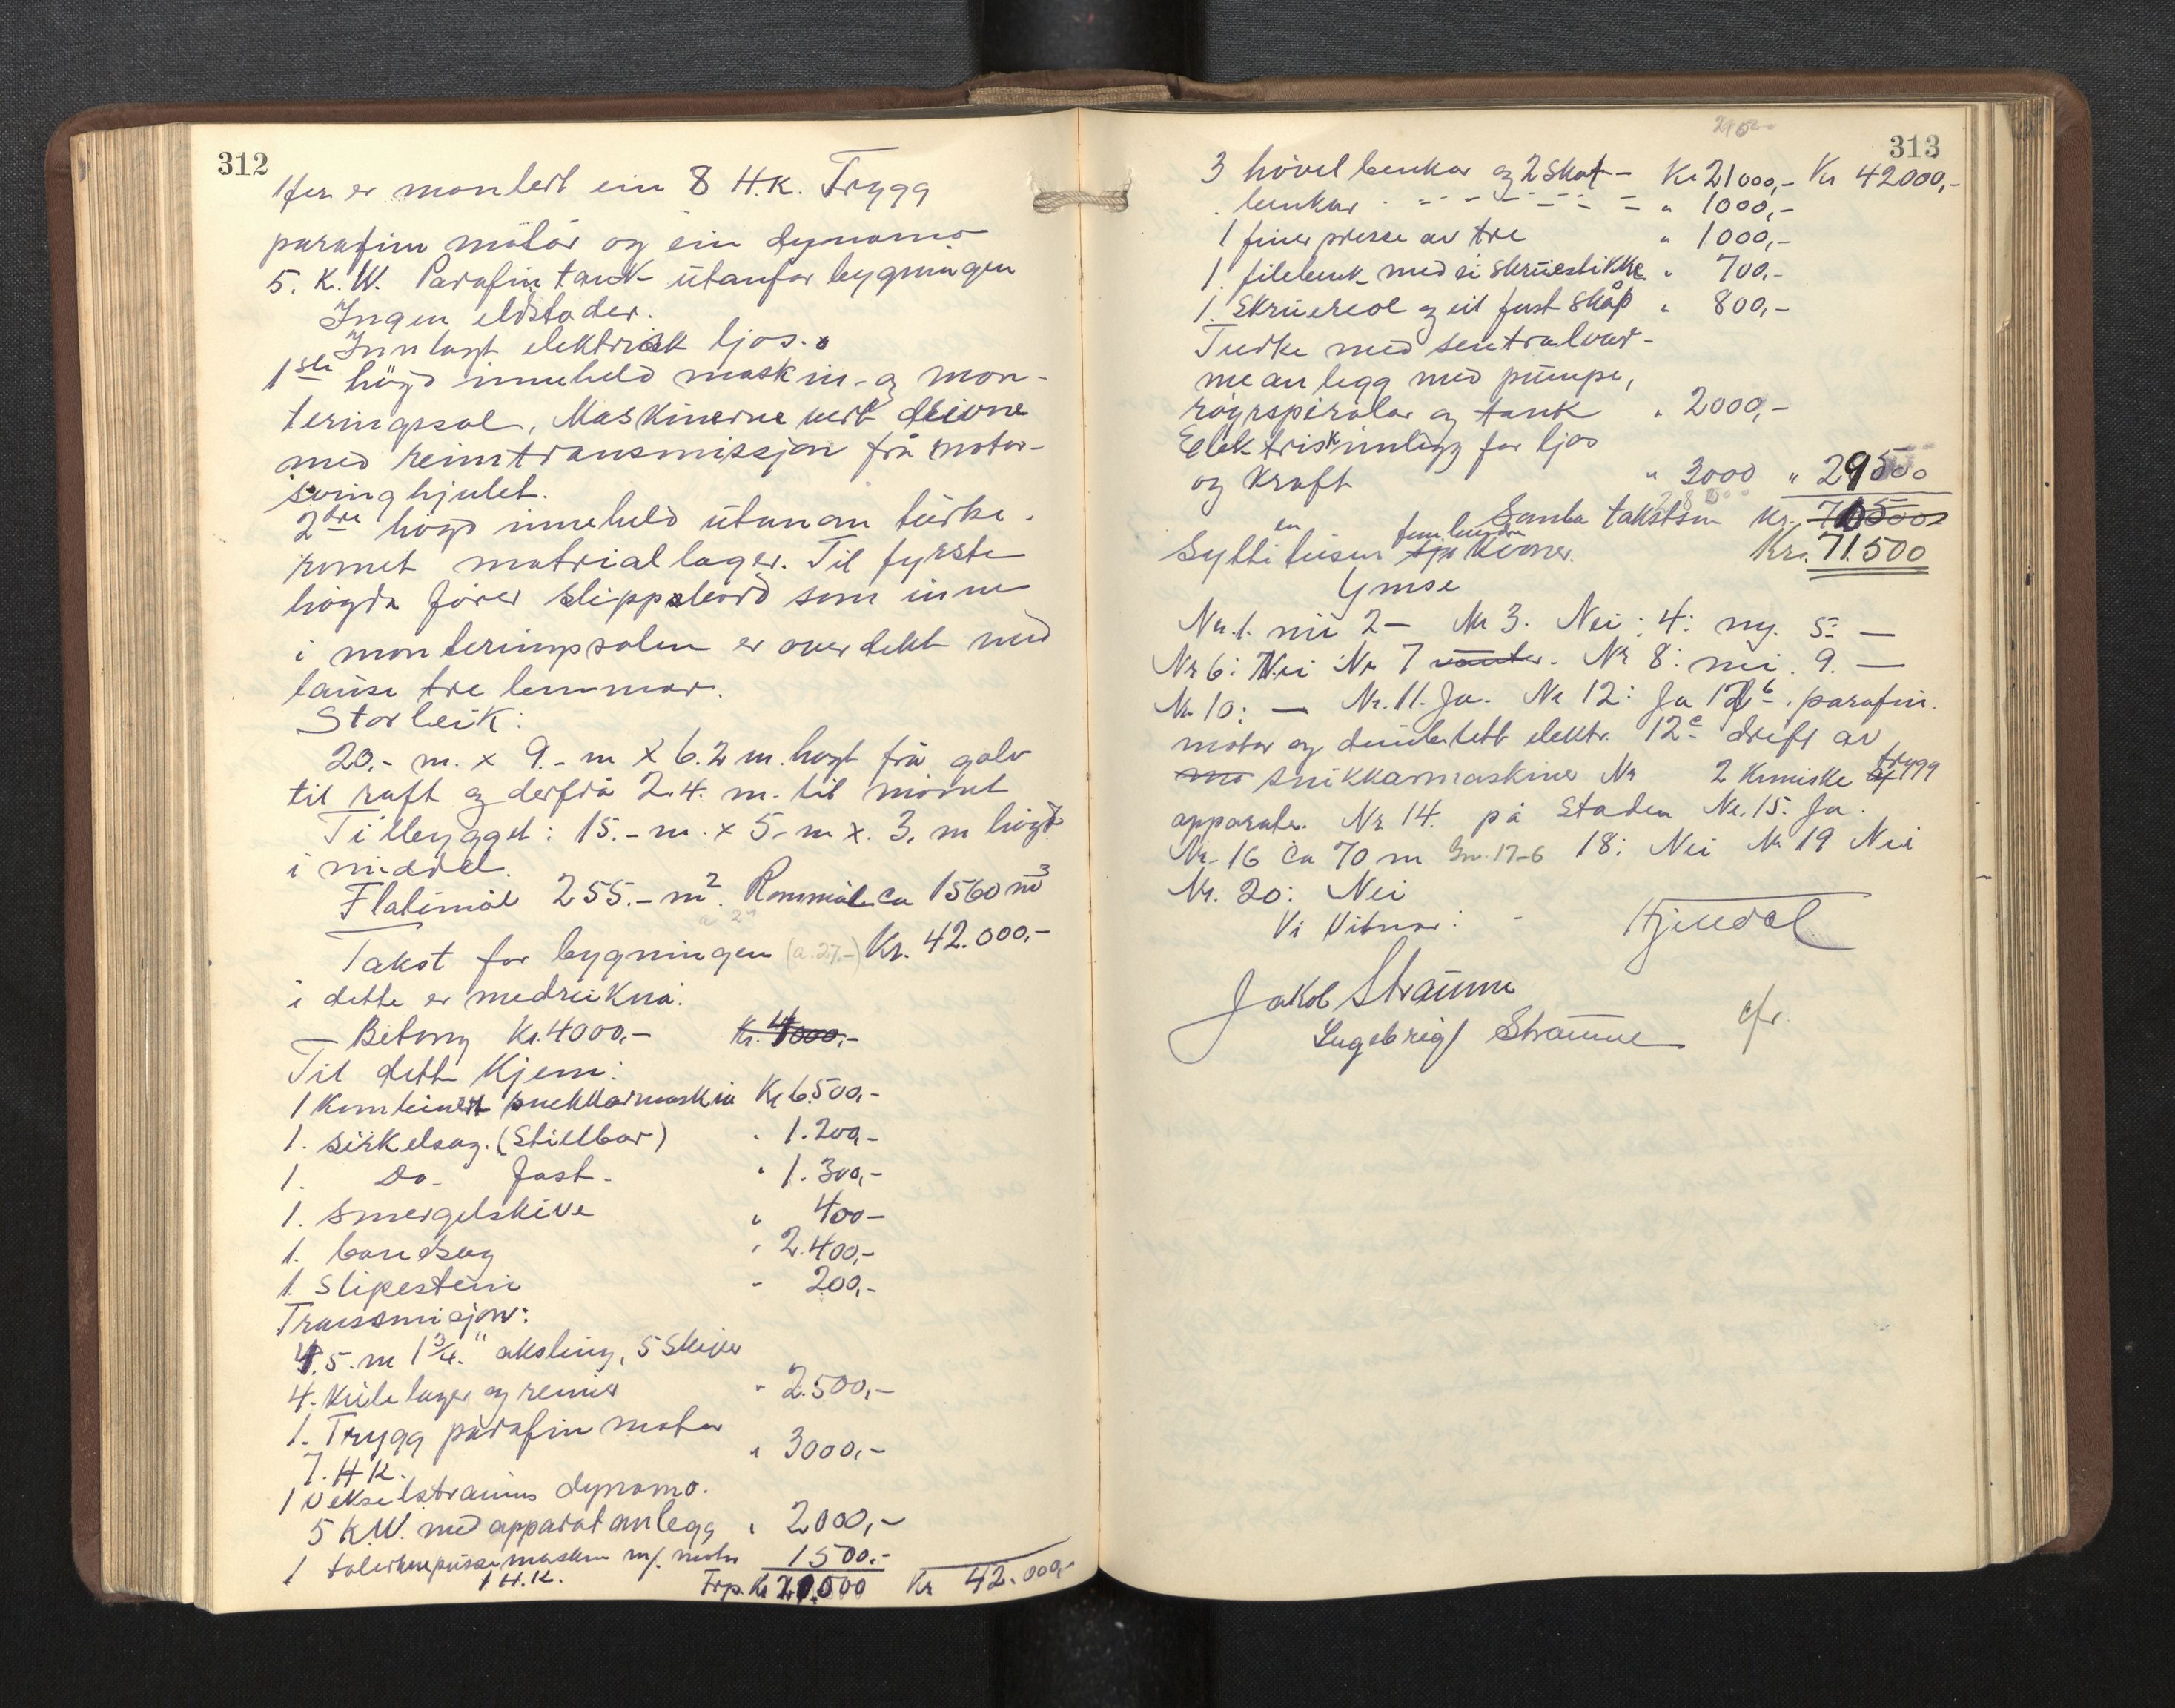 312
Her er montert ein 8 H.K. Trygg
parafin motor og ein dynamo
5. K.W. Parafintank utanfor bygningen
Ingen eldstader.
Innlagt elektrisk ljos.
1ste högd inneheld maskin- og mon-
teringssal. Maskinerne vert drivne
med reimtransmissjon frå motor-
svinghjulet.
2dre högd inneheld utanom turke-
romet matriallager. Til fyrste
högda förer slippebord som inne
i monteringssalen er overdekt med
lause tre lemmar.
Storleik:
20.- m. x 9.- m x 6.2 m. högt frå golv
til raft og derfrå 2.4. m. til mönet
Tilbygget: 15.- m. x 5.- m x. 3. m högd
i middel.
Flatemål 255.- m2. Rommål ca 1560 m3
Takst for bygningen (a. 27.-) Kr. 42.000,-
i dette er medreikna:
Betong Kr. 4000,- Kr. 4000,-
Til dette kjem:
1 Kombinert snekkarmaskin Kr 6.500,-
1. sirkelsag. (Stillbar) " 1.200,-
1. Do. fast. " 1.300,-
1. smergelskive " 400-
1. bandsag " 2.400,-
1 Slipestein - 200,-
Transmisjon:
4.5. m 1 3/4." aksling, 5 Skiver
4. kule lager og reimer " 2.500,-
1. Trygg parafin motor
7. H.K. " 3000,-
1 vekselstraums dynamo.
5 K.W. med apparatanlegg " 2000,-
1 talerkenpussemaskin m/. motor 1500.-
1 H.K. Trp. Kr 21.000 Kr 42.000,-
313
3 hövelbenkar og 2 skot- Kr 21000,- Kr 42000,-
benkar " 1000,-
1 finerpresse av tre " 1000,-
1. filebenk med ei skruestikke " 700,-
1. Skruereol og eit fast skåp " 800,-
Turke med sentralvar-
meanlegg med pumpe,
röyrspiralar og tank " 2000,-
Elektrisk innlegg for ljos
og kraft " 3000 " 29500
Samla takstsum Kr. 70500
en fem hundre
Sytti tusen kroner. Kr. 71.500
Ymse
Nr. 1. nei 2- Nr 3. Nei: 4: ny. 5: -
Nr 6: Nei Nr 7 vanter. Nr 8: nei. 9. -
Nr 10: - Nr. 11. Ja. Nr 12: Ja 12b. parafin.
motor og elektr. 12c drift av
snikkarmaskiner Nr 2 kemiske trygg
apparater. Nr 14. på Staden Nr. 15. Ja.
Nr. 16 ca 70 m Gnr. 17-6 18: Nei Nr 19 Nei
Nr. 20: Nei
Vi Vitnar: - Hjelldal
Jakob Straume
Ingebrigt Straume cfr.